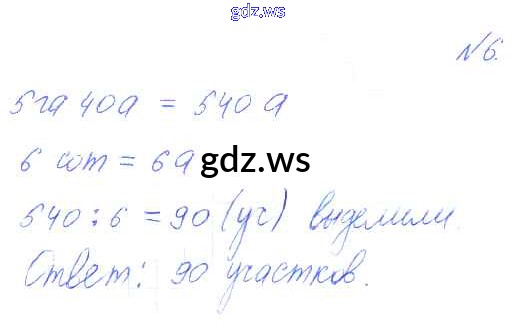 gdz.ws
№6.
5 га 40 а = 540 а
6 сот = 6 а
gdz.ws
540 : 6 = 90 (уч) выделили.
Ответ: 90 участков.